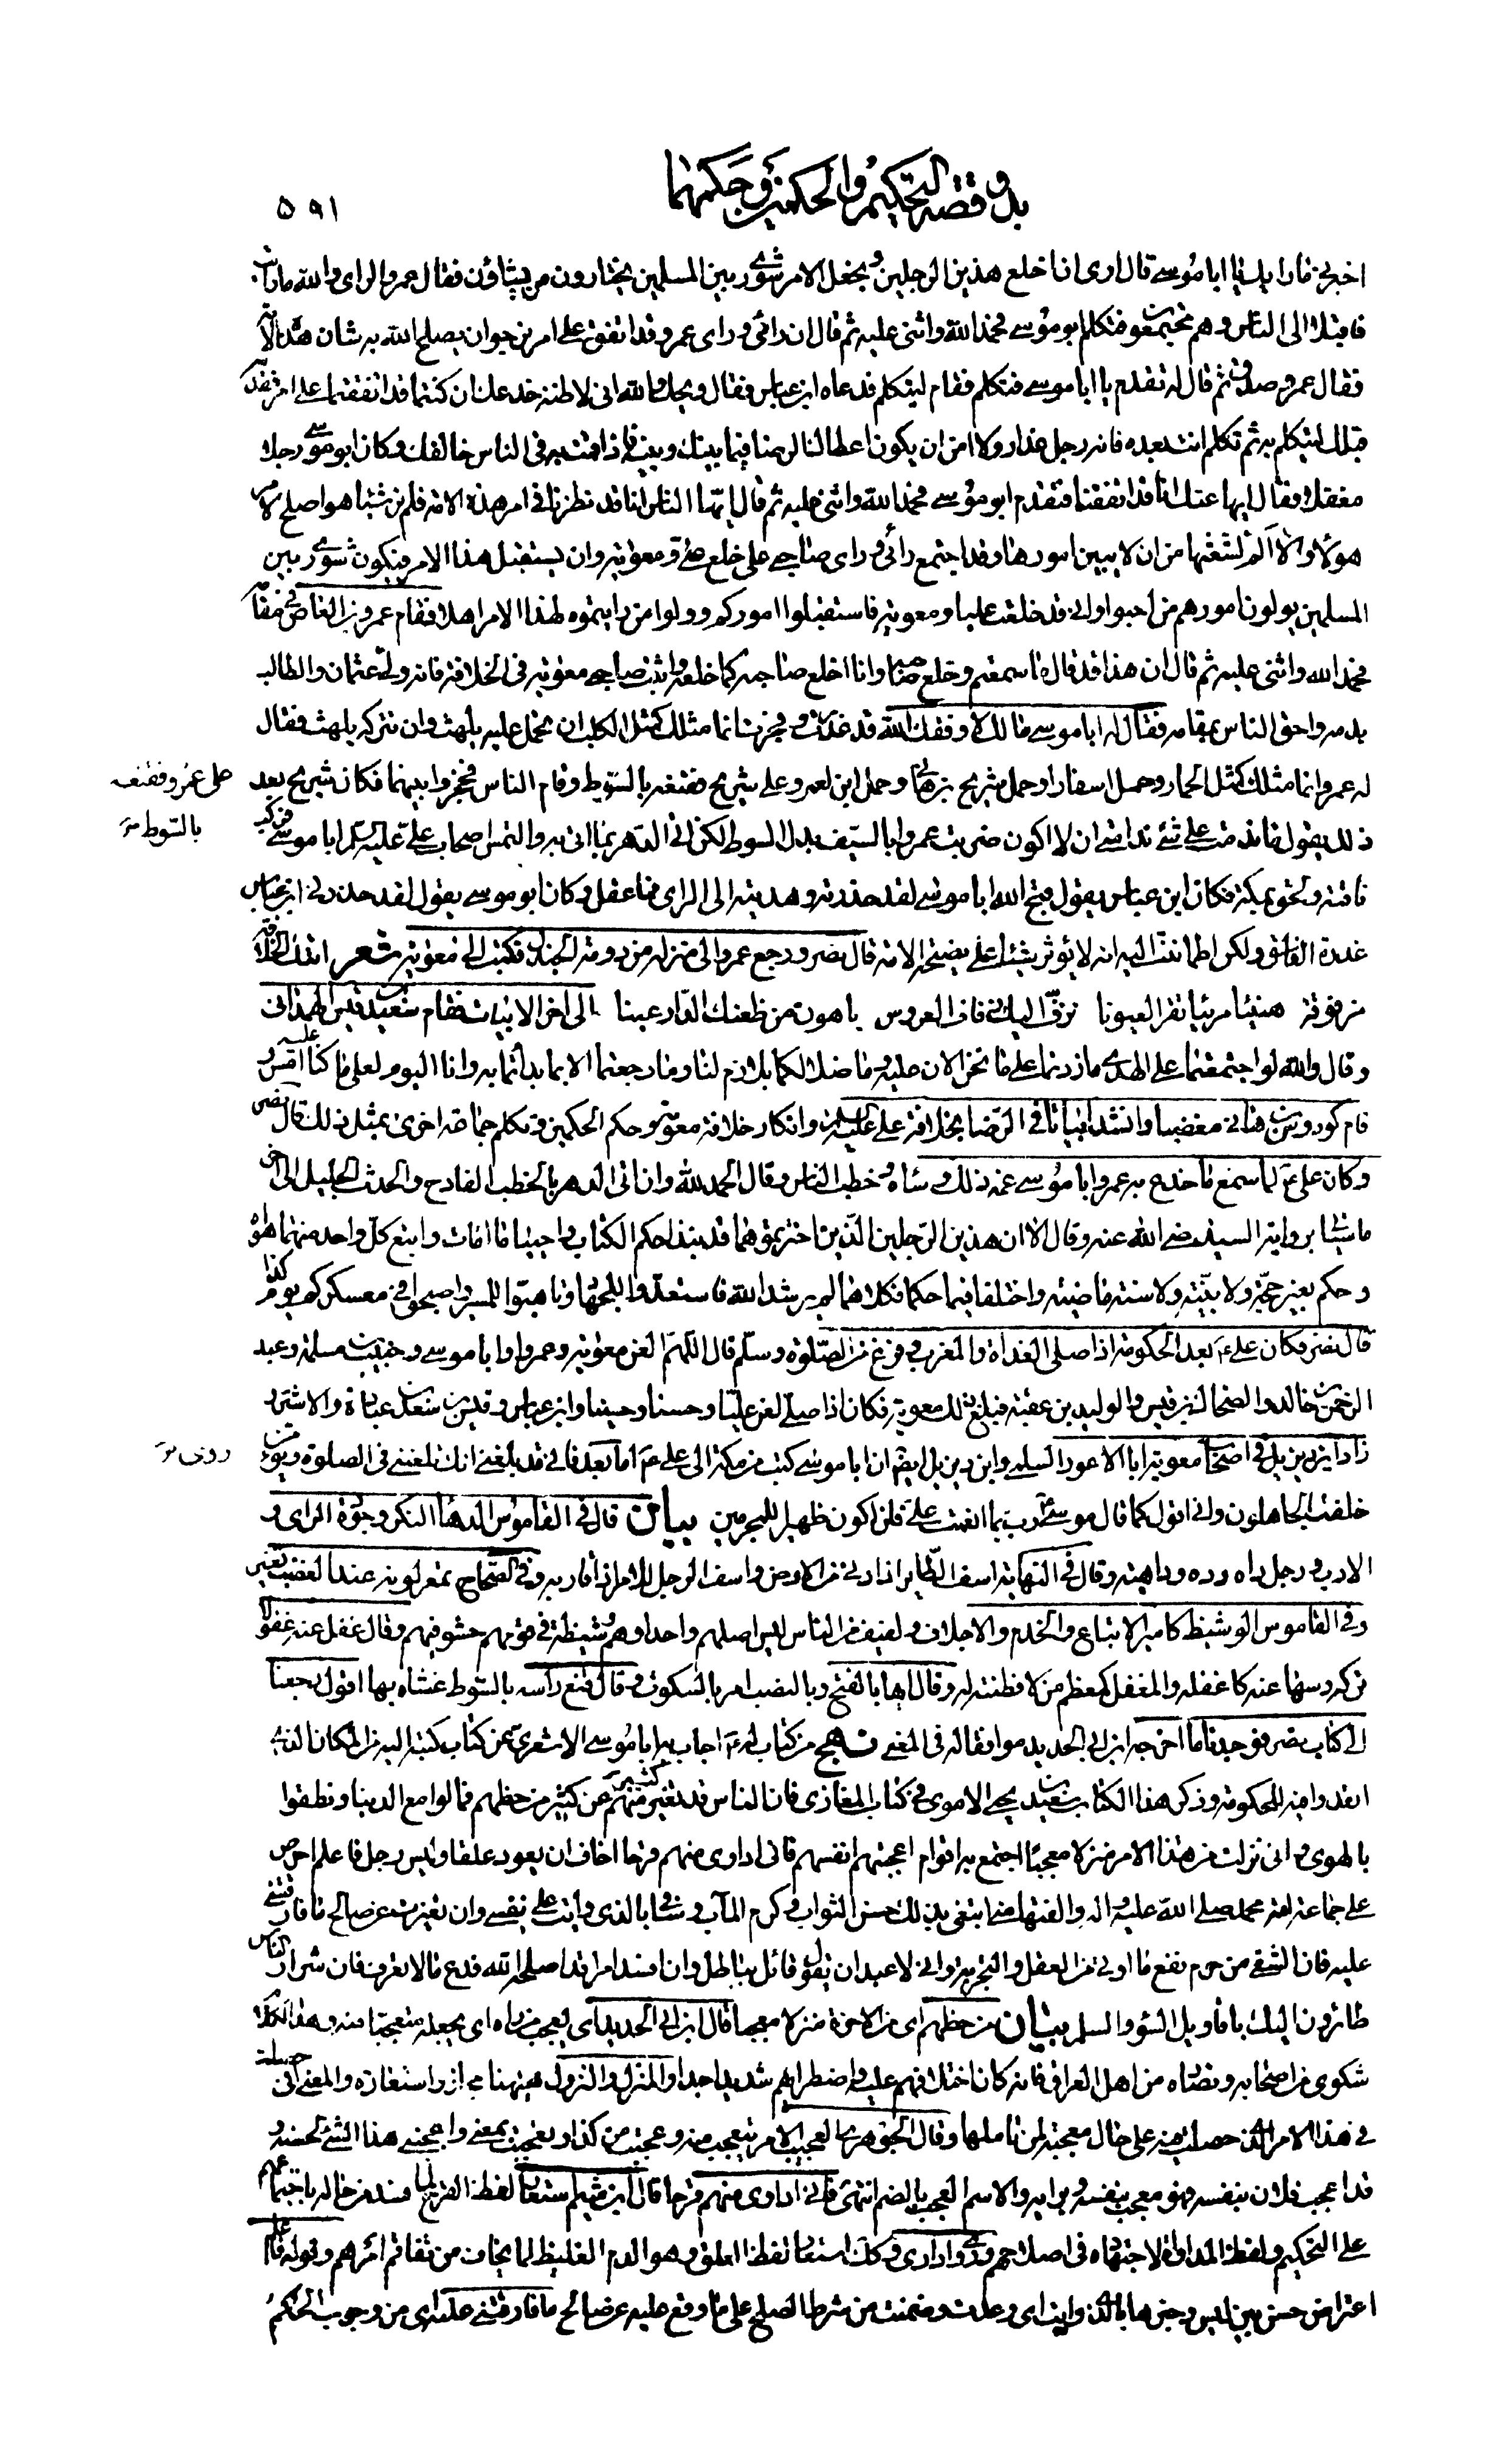 بدو قصة التحكيم والحكمين وحكمهما
٥٩١
اخبرني ما رايك يا ابا موسى قال ارى ان اخلع هذين الرجلين ونجعل الامر شورى بين المسلمين يختارون من يشاؤن فقال عمرو الراي والله ما رايت
فاقبلا الى الناس وهم مجتمعون فتكلم ابو موسى فحمد الله واثنى عليه ثم قال ان رائي وراى عمرو قد اتفق على امر نرجو ان يصلح الله به شان هذه الامة
فقال عمرو صدق ثم قال له تقدم يا ابا موسى فتكلم فقام ليتكلم فدعاه ابن عباس فقال ويحك والله اني لاظنه خدعك ان كنتما قد اتفقتما على امر فقدمه
قبلك ليتكلم به ثم تكلم انت بعده فانه رجل غدار ولا امن ان يكون اعطاك الرضا فيما بينك وبينه فاذا قمت به في الناس خالفك وكان ابو موسى رجلا
مغفلا فقال ايها عنك انا قد اتفقنا فتقدم ابو موسى فحمد الله واثنى عليه ثم قال ايها الناس انا قد نظرنا في امر هذه الامة فلم نر شيئا هو اصلح لامر
هؤلاء ولا الم لشعثها من ان لا يبين امورها وقد اجتمع رائي وراى صاحبي على خلع علي ومعوية وان يستقبل هذا الامر فيكون شورى بين
المسلمين يولون امورهم من احبوا واني قد خلعت عليا ومعوية فاستقبلوا اموركم وولوا من رايتموه لهذا الامر اهلا فقام عمرو بن العاص في مقامه
فحمد الله واثنى عليه ثم قال ان هذا قد قال ما سمعتم وخلع صاحبه وانا اخلع صاحبه كما خلعه واثبت صاحبي معوية في الخلافة فانه ولي عثمان والطالب
بدمه واحق الناس بمقامه فقال له ابا موسى مالك لا وفقك الله قد غدرت وفجرت انما مثلك كمثل الكلب ان تحمل عليه يلهث وان تتركه يلهث فقال
له عمرو انما مثلك كمثل الحمار يحمل اسفارا وحمل شريح بن هاني وحمل ابن لعمرو على شريح فقنعه بالسوط وقام الناس فحجزوا بينهما فكان شريح بعد
على عمرو فقنعه بالسوط
ذلك يقول ما ندمت على شئ ندامتي ان لا اكون ضربت عمروا بالسيف بدل السوط لكن اتى الدهر بما اتى به والتمس اصحاب علي عليه السلم ابا موسى فركب
ناقته ولحق بمكة فكان ابن عباس يقول قبح الله ابا موسى لقد حذرته وهديته الى الراي فما عقل وكان ابو موسى يقول لقد حذرني ابن عباس
غدرة الفاسق ولكن اطماننت اليه انه لا يؤثر شيئا على نصيحة الامة قال نصر ورجع عمرو الى منزله من دومة الجندل فكتب الى معوية شعر اتتك الخلافة
مزفوفة هنيئا مريئا تقر العيونا تزف اليك زفاف العروس باهون من طعنك الدارعينا الى اخر الابيات فقام سعيد بن قيس الهمداني
وقال والله لو اجتمعتما على الهدى ما زدتما على ما نحن الان عليه وما ضلالكما بلازم لنا وما رجعتما الا بما بدأتما به وانا اليوم لعلى ما كنا عليه امس و
قام كردوس بن هاني مغضبا وانشد ابياتا في الرضا بخلافة علي عليه السلم وانكار خلافة معوية وحكم الحكمين وتكلم جماعة اخرى بمثل ذلك قال نصر
وكان علي لما سمع ما خدع به عمرو ابا موسى غمه ذلك وساءه وخطب الناس وقال الحمد لله وان اتى الدهر بالخطب الفادح والحدث الجليل الى اخر
ما سياتي برواية السيد رضي الله عنه وقال الا ان هذين الرجلين الذين اخترتموهما قد نبذا حكم الكتاب واحييا ما امات واتبع كل واحد منهما هواه
وحكم بغير حجة ولا بينة ولا سنة ماضية واختلفا فيما حكما فكلاهما لم يرشد الله فاستعدوا للجهاد وتاهبوا للمسير واصبحوا في معسكركم يوم كذا
قال نصر فكان علي بعد الحكومة اذا صلى الغداة والمغرب وفرغ من الصلوة وسلم قال اللهم العن معوية وعمروا وابا موسى وحبيب بن مسلمة وعبد
الرحمن بن خالد والضحاك بن قيس والوليد بن عقبة فبلغ ذلك معوية فكان اذا صلى لعن عليا وحسنا وحسينا وابن عباس وقيس بن سعد بن عبادة والاشتر و
زاد ابن ديزيل في اصحاب معوية ابا الاعور السلمي وابن ديزيل ايضا ان ابا موسى كتب من مكة الى علي اما بعد فاني قد بلغني انك تلعنني في الصلوة ويؤمن
روى
خلفك الجاهلون واني اقول كما قال موسى رب بما انعمت علي فلن اكون ظهيرا للمجرمين بيان قال في القاموس الدهاء النكر وجودة الراي و
الادب ورجل داه وده وداهية وقال في النهاية اسف الطائر اذا دنى من الارض واسف الرجل للامر اذا قاربه وفي الصحاح تمعر لونه عند الغضب تغير
وفي القاموس الوشيظ كامير الاتباع والخدم والاحلاف ولفيف من الناس ليس اصلهم واحدا وهم وشيظة في قومهم حشو فيهم وقال غفل عنه غفولا
تركه وسها عنه كاغفله والمغفل كمعظم من لا فطنة له وقال ايها بالفتح وبالنصب امر بالسكوت وقال قنع راسه بالسوط غشاه بها اقول رجعنا
الى كتاب نصر فوجدناه ما اخرجه ابن ابي الحديد موافقا له في المغنى نهج من كتاب له اجاب به ابا موسى الاشعري عن كتاب كتبه اليه من المكان الذي
اتعدوا فيه للحكومة وذكر هذا الكتاب سعيد بن يحيى الاموي في كتاب المغازي فان الناس قد تغير كثير منهم عن كثير من حظهم فمالوا مع الدنيا ونطقوا
بالهوى واني نزلت من هذا الامر منزلا معجبا اجتمع به اقوام اعجبتهم انفسهم فاني اداوي منهم قرحا اخاف ان يعود علقا وليس رجل فاعلم احرص
على جماعة امة محمد صلى الله عليه واله والفتها مني ابتغي بذلك حسن الثواب وكرم المآب وسافي بالذي وايت على نفسي وان تغيرت عن صالح ما فارقتني
عليه فان الشقي من حرم نفع ما اوتي من العقل والتجربة واني لاعبد ان يقول قائل بباطل وان افسد امرا قد اصلحه الله فدع ما لا تعرف فان شرار الناس
طائرون اليك باقاويل السوء والسلم بيان من حظهم اي من الاخرة منزلا معجبا قال ابن ابي الحديد اي يعجب من راه اي يجعله متعجبا منه وهذا الكلام
شكوى من اصحابه ونصاره من اهل العراق فانه كان اختلافهم عليه واضطرابهم شديدا جدا والمنزل والنزول ههنا مجاز واستعارة والمعنى اني حصلت
في هذا الامر الذي حصلت فيه على حال معجبة لمن تاملها وقال الجوهري العجيب الامر يتعجب منه وعجبت من كذا وتعجبت بمعنى واعجبني هذا الشئ لحسنه و
قد اعجب فلان بنفسه فهو معجب بنفسه وبرايه والاسم العجب بالضم انتهى فاني اداوي منهم قرحا قال ابن ميثم استعار لفظ القرح لما فسد من حاله باجتماعهم
على التحكيم ولفظ المداواة لاجتهاده في اصلاحهم وروي اداري وكذلك استعار لفظ العلق وهو الدم الغليظ لما يخاف من تفاقم امرهم وقوله فاعلم
اعتراض حسن بين ليس وخبرها بالذي وايت اي وعدت وضمنت من شرط الصلح على ما وقع عليه عن صالح ما فارقتني عليه اي من وجوب الحكم